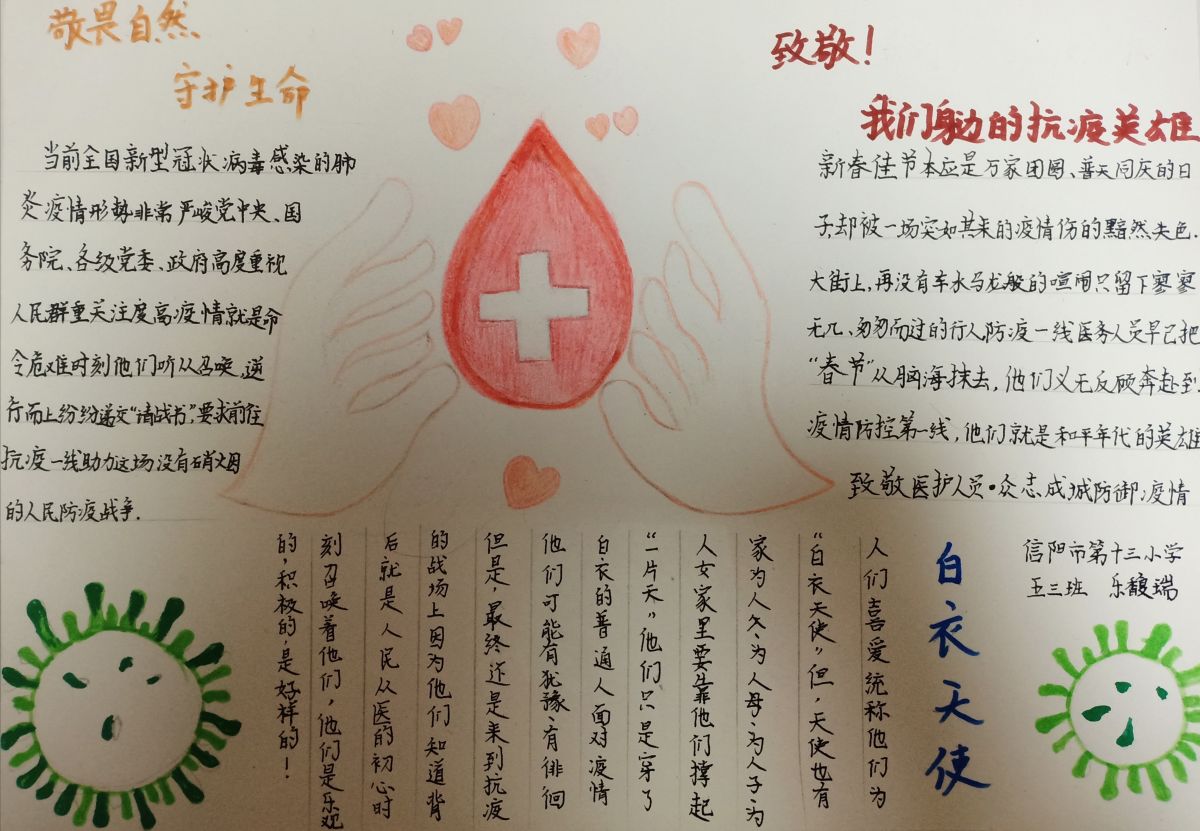 敬畏自然
守护生命
当前全国新型冠状病毒感染的肺
炎疫情形势非常严峻党中央、国
务院、各级党委、政府高度重视
人民群重关注度高疫情就是命
令危难时刻他们听从召唤，逆
行而上纷纷递交“请战书”，要求前往
抗疫一线助力这场没有硝烟
的人民防疫战争.
致敬！
我们身边的抗疫英雄
新春佳节本应是万家团圆、普天同庆的日
子却被一场突如其来的疫情伤的黯然失色.
大街上，再没有车水马龙般的喧闹只留下寥寥
无几、匆匆而过的行人防疫一线医务人员早已把
“春节”从脑海抹去，他们义无反顾奔赴至
疫情防控第一线，他们就是和平年代的英雄
致敬医护人员·众志成城防御疫情
信阳市第十三小学
五三班 乐馥瑞
白衣天使
人们喜爱统称他们为
“白衣天使”但，天使也有
家为人父、为人母、为人子为
人女家里要靠他们撑起
“一片天”他们只是穿了
白衣的普通人面对疫情
他们可能有犹豫、有徘徊
但是，最终还是来到抗疫
的战场上因为他们知道背
后就是人民从医的初心时
刻召唤着他们，他们是乐观
的，积极的是好样的！